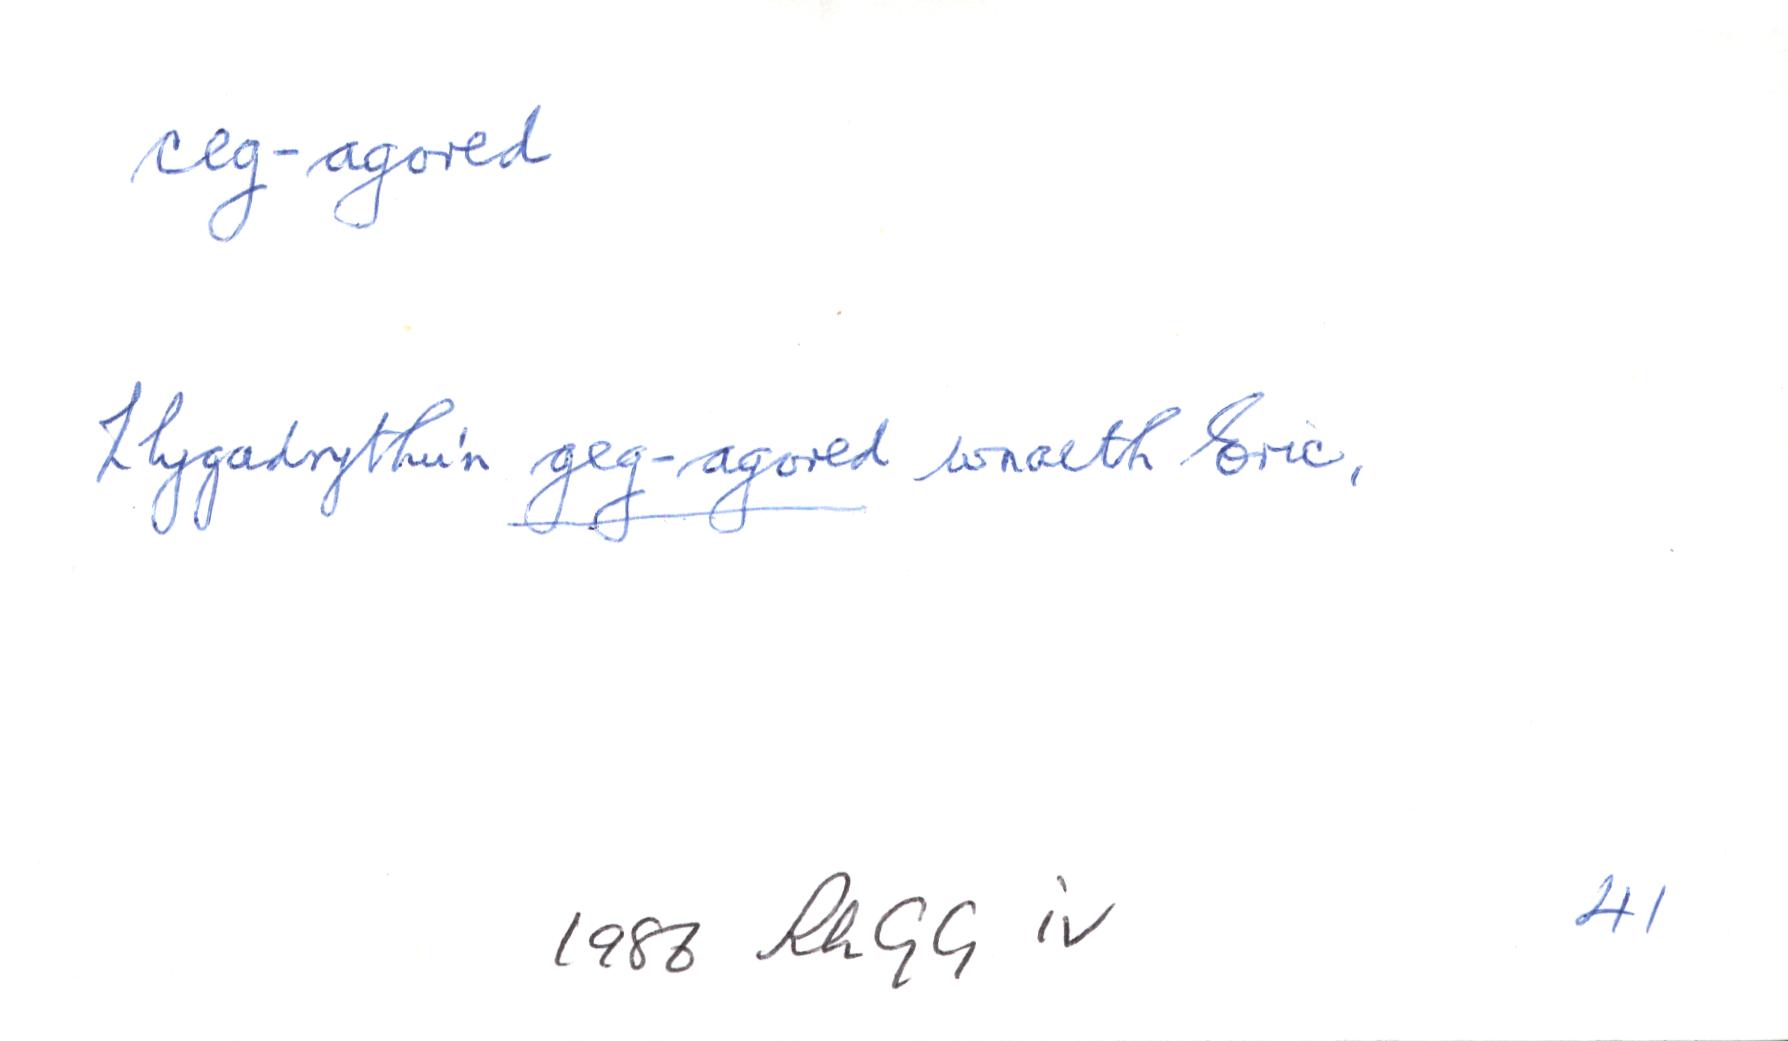 ceg-agored
Llygadrythu'n geg-agored wnaeth Eric,
1988 RhGG iv 41